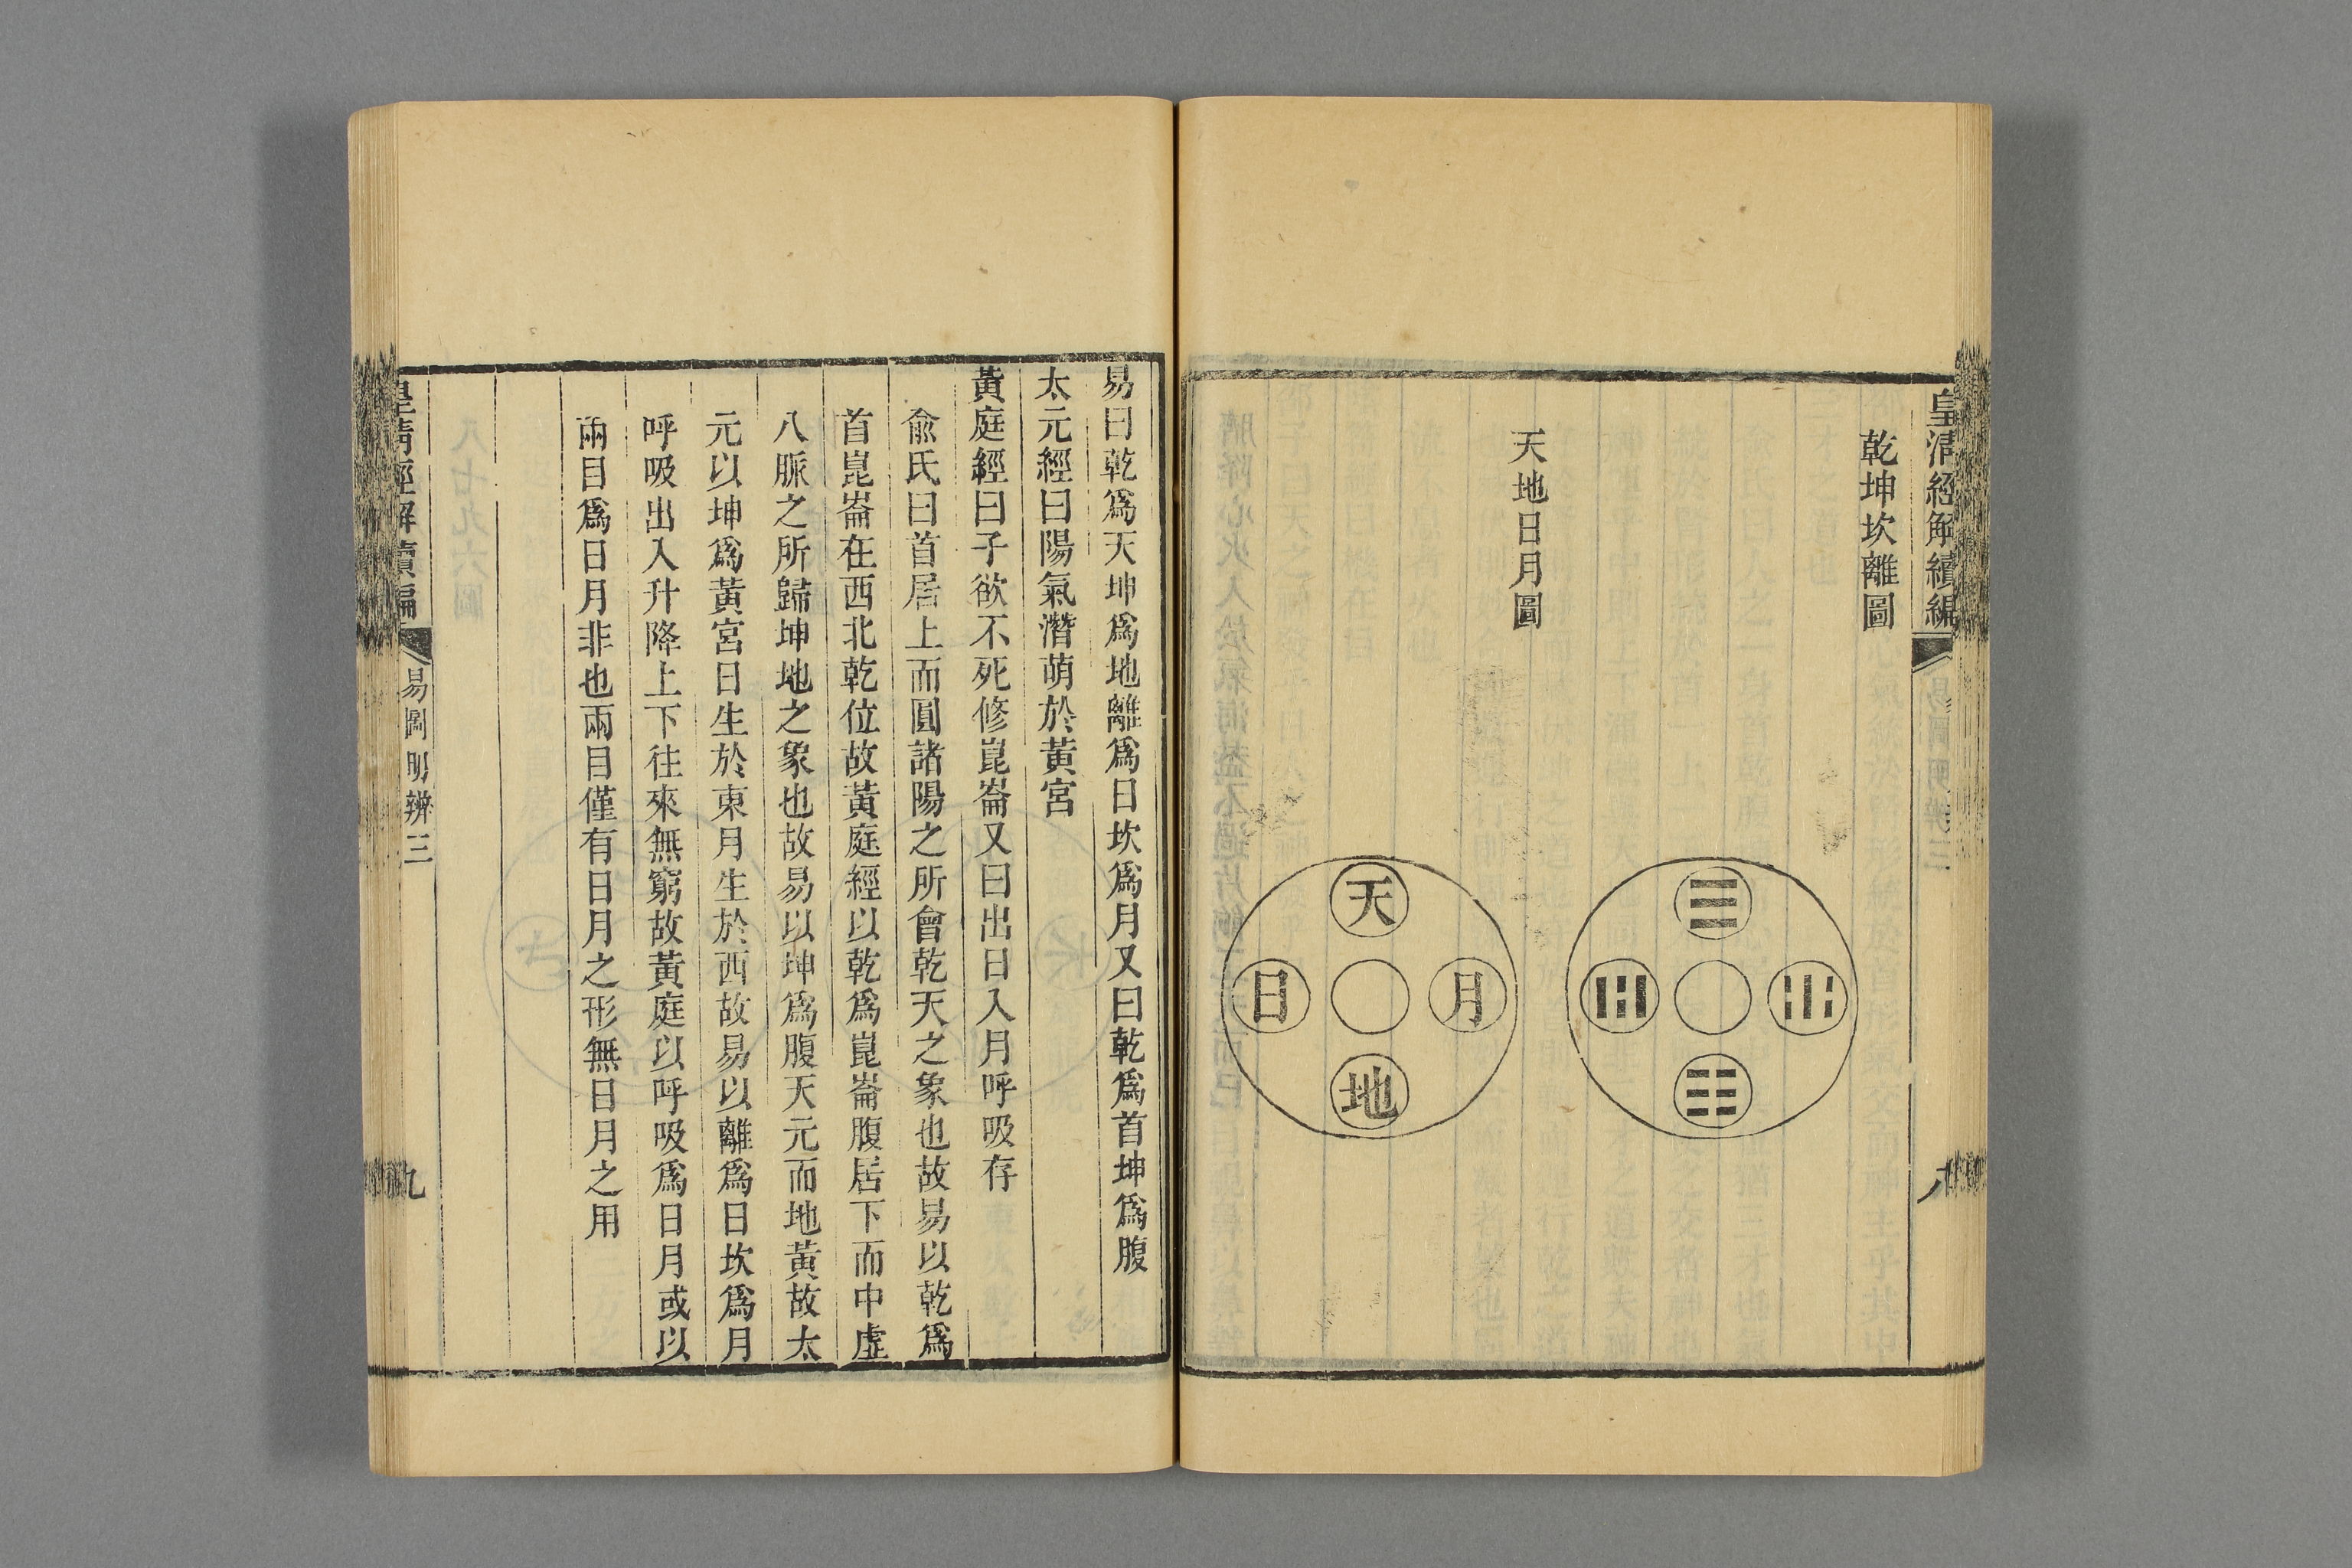 皇清經解續編
易圖明辨三
八
乾坤坎離圖
☰
☵
☷
☲
天地日月圖
天
月
地
日
易曰乾爲天坤爲地離爲日坎爲月又曰乾爲首坤爲腹
太元經曰陽氣潛萌於黃宮
黃庭經曰子欲不死修崑崙又曰出日入月呼吸存
俞氏曰首居上而圓諸陽之所會乾天之象也故易以乾爲
首崑崙在西北乾位故黃庭經以乾爲崑崙腹居下而中虛
八脈之所歸坤地之象也故易以坤爲腹天元而地黃故太
元以坤爲黃宮日生於東月生於西故易以離爲日坎爲月
呼吸出入升降上下往來無窮故黃庭以呼吸爲日月或以
兩目爲日月非也兩目僅有日月之形無日月之用
皇清經解續編
易圖明辨三
九